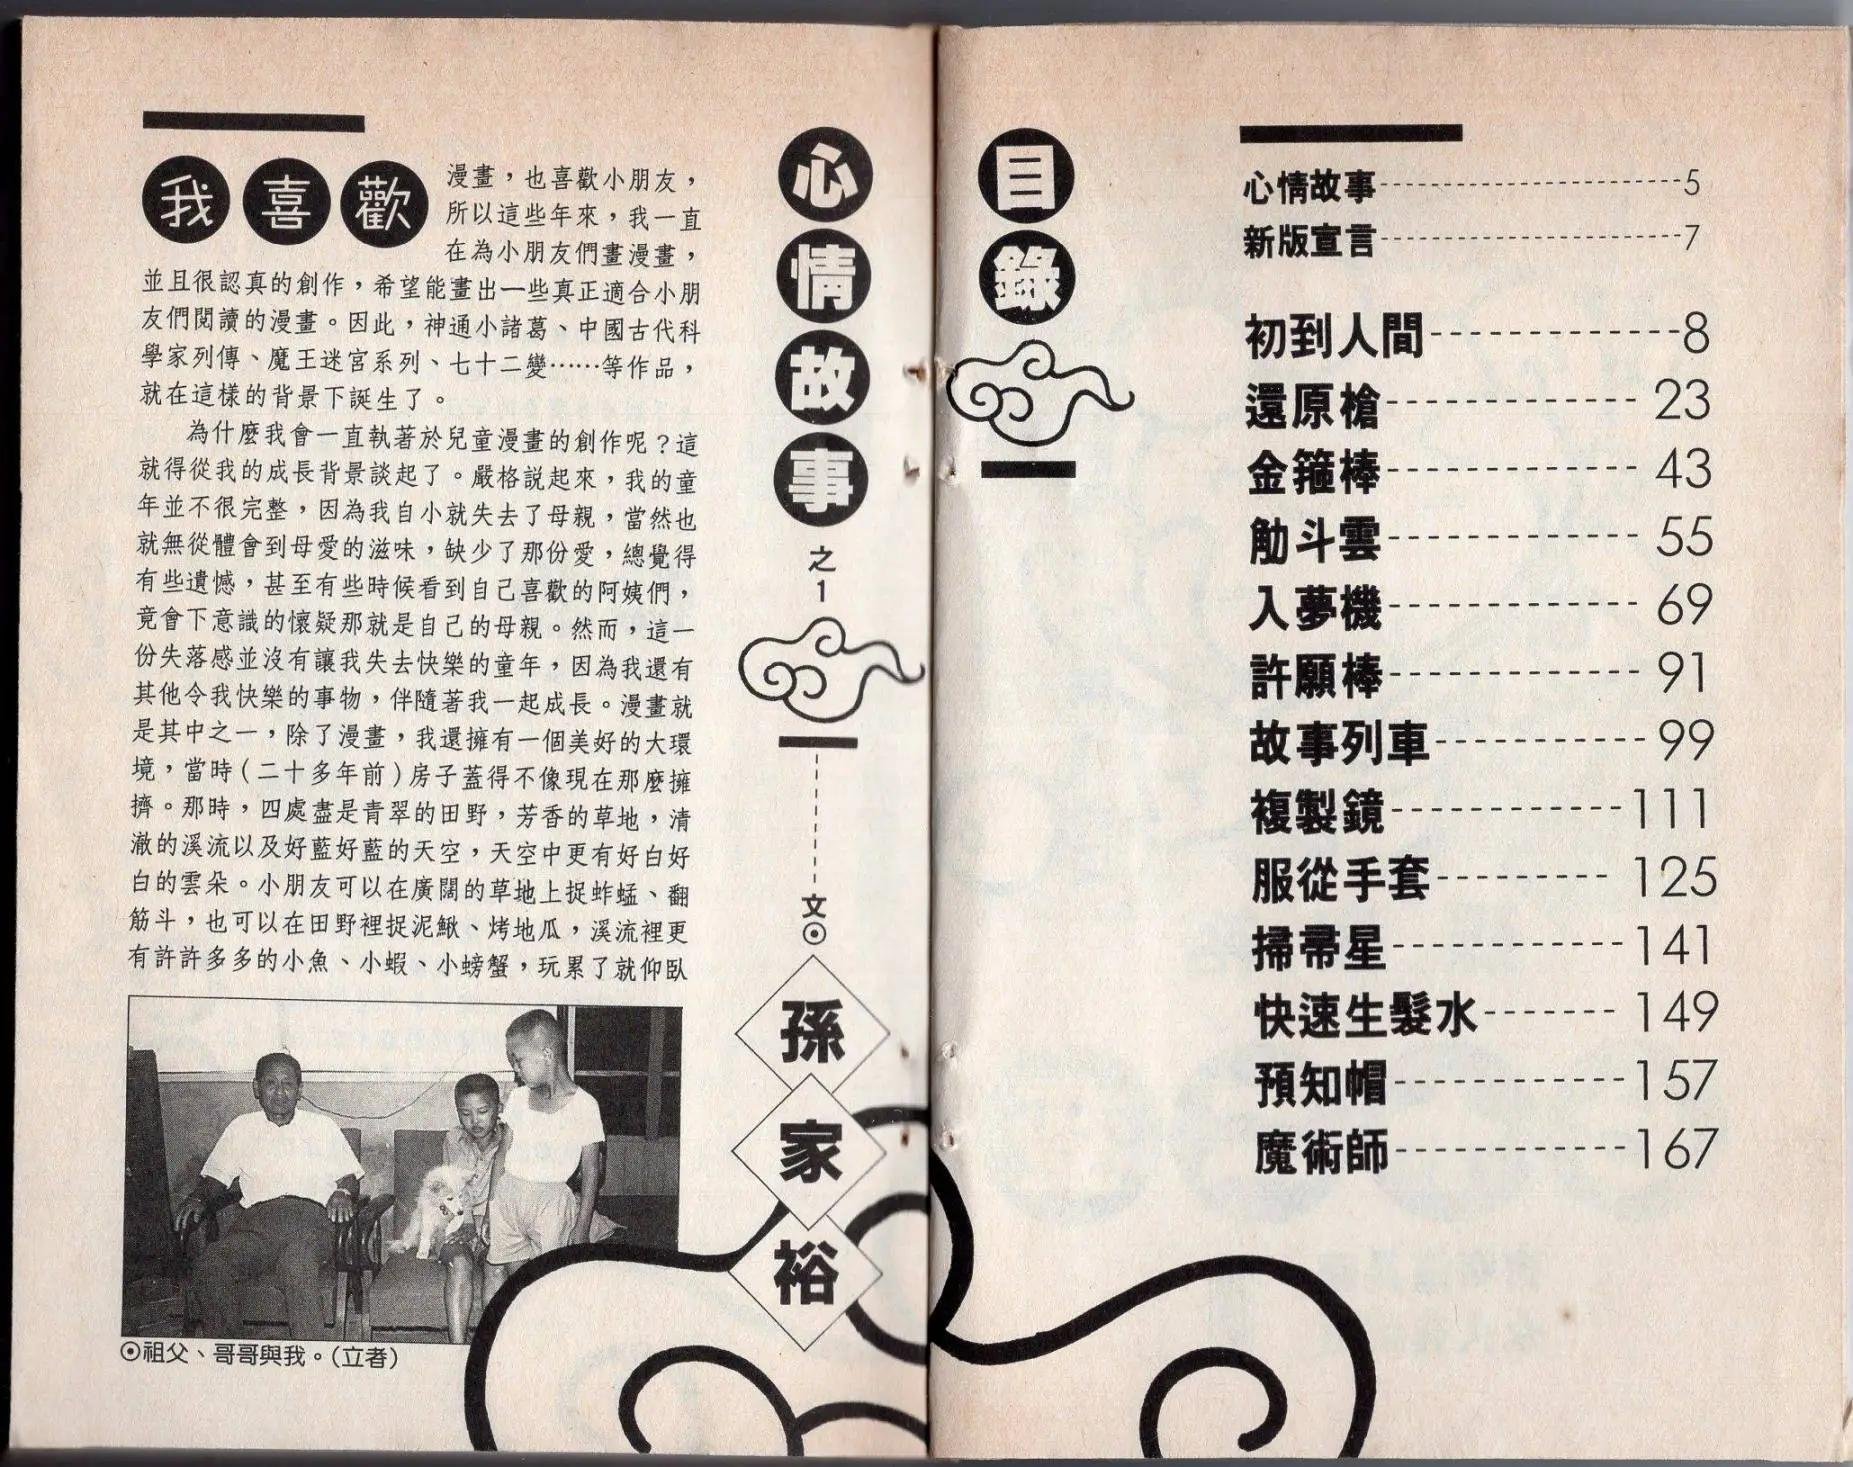 我喜歡
漫畫，也喜歡小朋友，
所以這些年來，我一直
在為小朋友們畫漫畫，
並且很認真的創作，希望能畫出一些真正適合小朋
友們閱讀的漫畫。因此，神通小諸葛、中國古代科
學家列傳、魔王迷宮系列、七十二變……等作品，
就在這樣的背景下誕生了。
為什麼我會一直執著於兒童漫畫的創作呢？這
就得從我的成長背景談起了。嚴格說起來，我的童
年並不很完整，因為我自小就失去了母親，當然也
就無從體會到母愛的滋味，缺少了那份愛，總覺得
有些遺憾，甚至有些時候看到自己喜歡的阿姨們，
竟會下意識的懷疑那就是自己的母親。然而，這一
份失落感並沒有讓我失去快樂的童年，因為我還有
其他令我快樂的事物，伴隨著我一起成長。漫畫就
是其中之一，除了漫畫，我還擁有一個美好的大環
境，當時(二十多年前)房子蓋得不像現在那麼擁
擠。那時，四處盡是青翠的田野，芳香的草地，清
澈的溪流以及好藍好藍的天空，天空中更有好白好
白的雲朵。小朋友可以在廣闊的草地上捉蚱蜢、翻
筋斗，也可以在田野裡捉泥鰍、烤地瓜，溪流裡更
有許許多多的小魚、小蝦、小螃蟹，玩累了就仰臥
⊙祖父、哥哥與我。(立者)
心情故事之1
文⊙孫家裕
目錄
心情故事 5
新版宣言 7
初到人間 8
還原槍 23
金箍棒 43
觔斗雲 55
入夢機 69
許願棒 91
故事列車 99
複製鏡 111
服從手套 125
掃帚星 141
快速生髮水 149
預知帽 157
魔術師 167